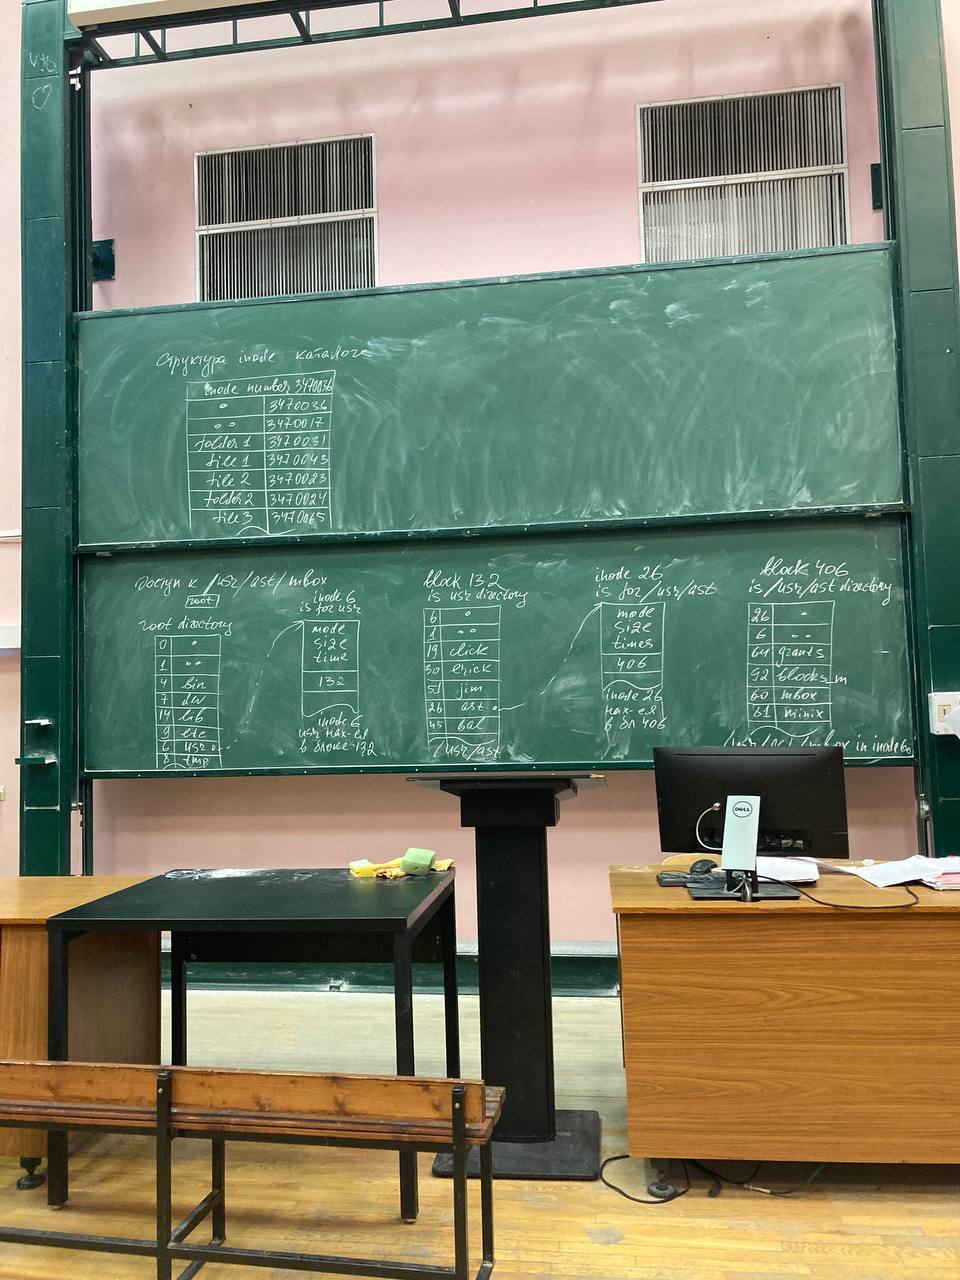 Структура inode каталога
inode number 3470036
. 3470036
.. 3470017
folder 1 3470031
file 1 3470043
file 2 3470023
folder 2 3470024
file 3 3470065
Доступ к /usr/ast/mbox
root
root directory
0 .
1 ..
4 bin
7 dev
14 lib
9 etc
6 usr
8 tmp
inode 6
is for usr
mode
size
time
132
inode 6
usr нах-ся
в блоке 132
block 132
is usr directory
6 .
1 ..
19 dick
30 erick
51 jim
26 ast
45 bal
/usr/ast
inode 26
is for /usr/ast
mode
size
times
406
inode 26
нах-ся
в бл 406
block 406
is /usr/ast directory
26 .
6 ..
64 grants
92 blocks_m
60 mbox
61 minix
/usr/ast/mbox in inode 60
DELL